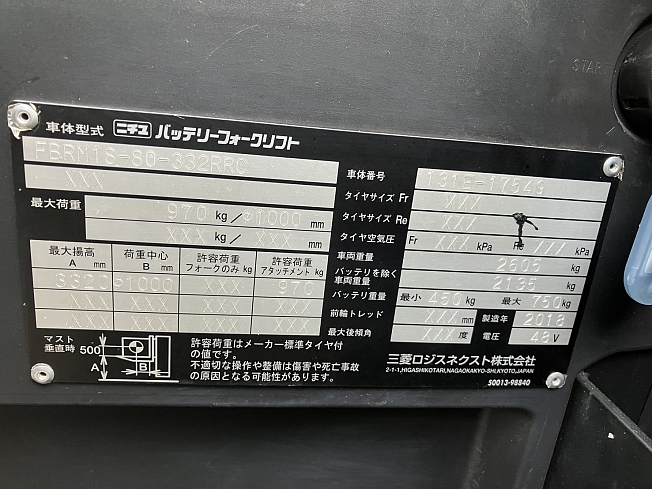 START
車体型式 ニチユ バッテリーフォークリフト
FBRM18-80-332RRC
XXX
最大荷重 970 kg / φ1000 mm
XXX kg / XXX mm
最大揚高 A mm 荷重中心 B mm 許容荷重 フォークのみ kg 許容荷重 アタッチメント kg
3320 φ1000 XXX 970
XXX XXX XXX XXX
XXX XXX XXX
マスト垂直時 500 A B
許容荷重はメーカー標準タイヤ付
の値です。
不適切な操作や整備は傷害や死亡事故
の原因となる可能性があります。
車体番号 131E-17549
タイヤサイズ Fr XXX
タイヤサイズ Re XXX
タイヤ空気圧 Fr XXX kPa Re XXX kPa
車両重量 2605 kg
バッテリを除く車両重量 2135 kg
バッテリ重量 最小 450 kg 最大 750 kg
前輪トレッド XXX mm 製造年 2018
最大後傾角 XXX 度 電圧 48 V
三菱ロジスネクスト株式会社
2-1-1,HIGASHIKOTARI,NAGAOKAKYO-SHI,KYOTO,JAPAN
50013-98840